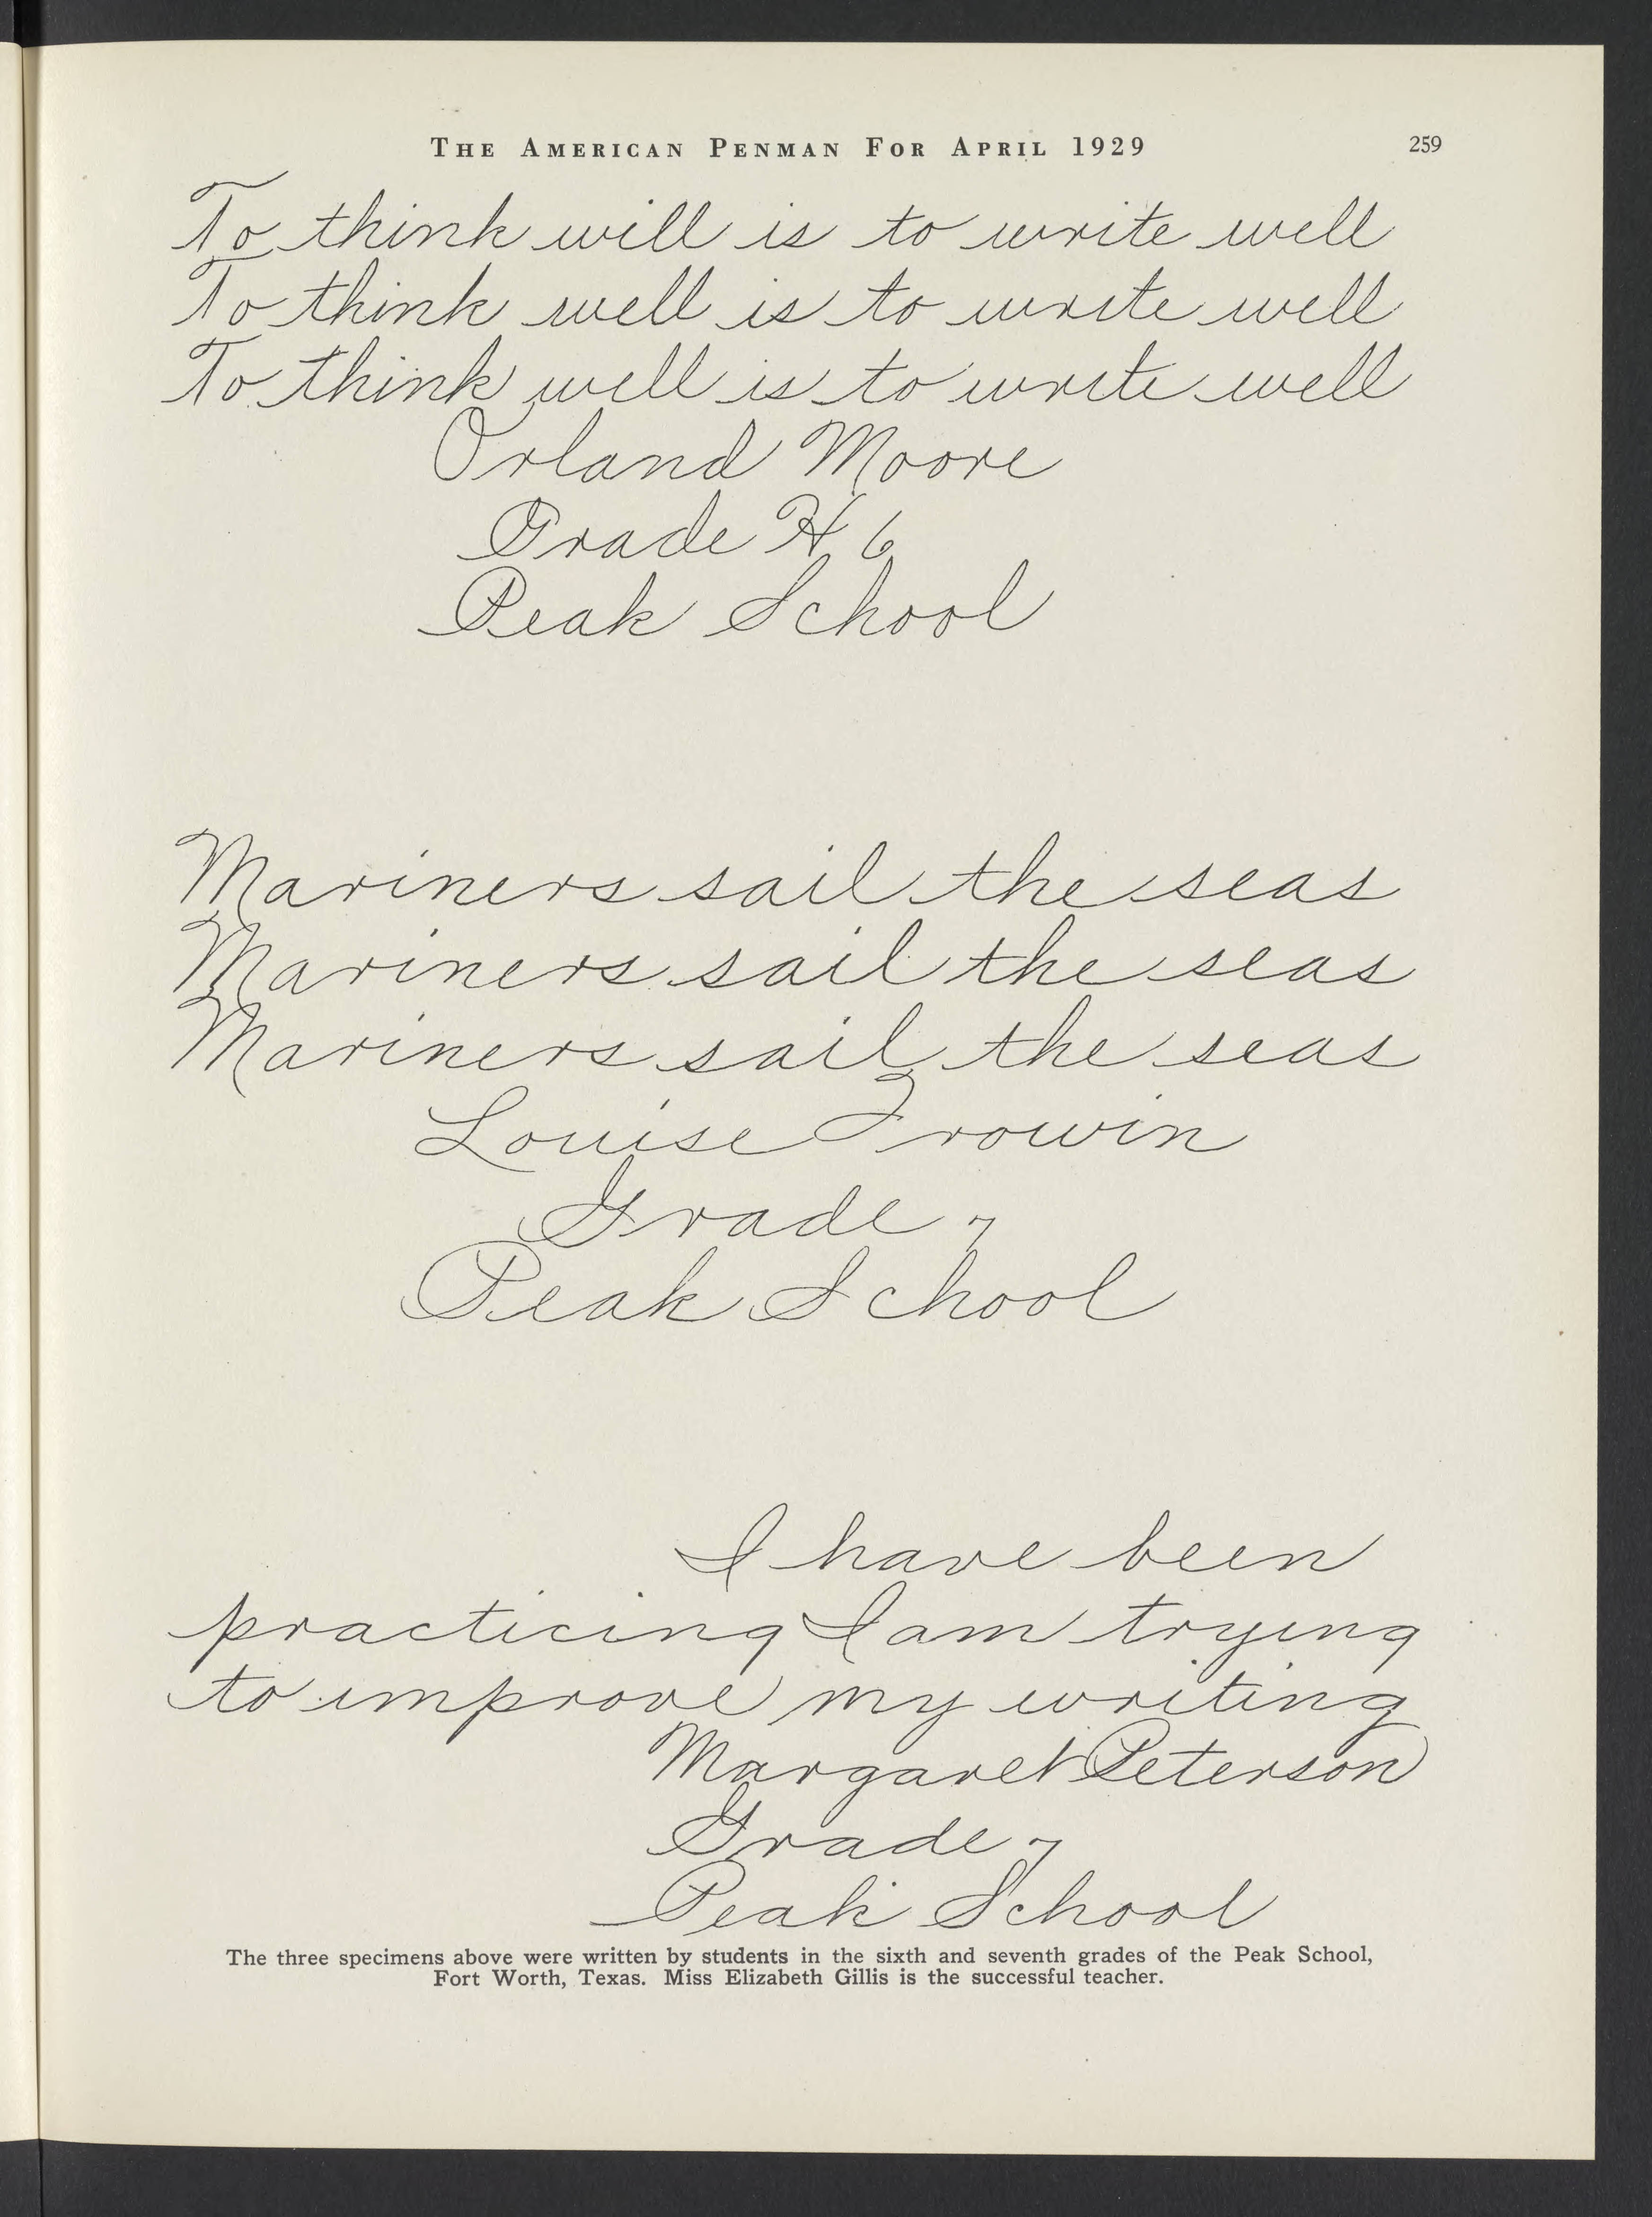 THE AMERICAN PENMAN FOR APRIL 1929 259
To think will is to write well
To think well is to write well
To think well is to write well
Orland Moore
Grade H 6
Peak School
Mariners sail the seas
Mariners sail the seas
Mariners sail the seas
Louise Frowin
Grade 7
Peak School
I have been
practicing I am trying
to improve my writing
Margaret Peterson
Grade 7
Peak School
The three specimens above were written by students in the sixth and seventh grades of the Peak School,
Fort Worth, Texas. Miss Elizabeth Gillis is the successful teacher.